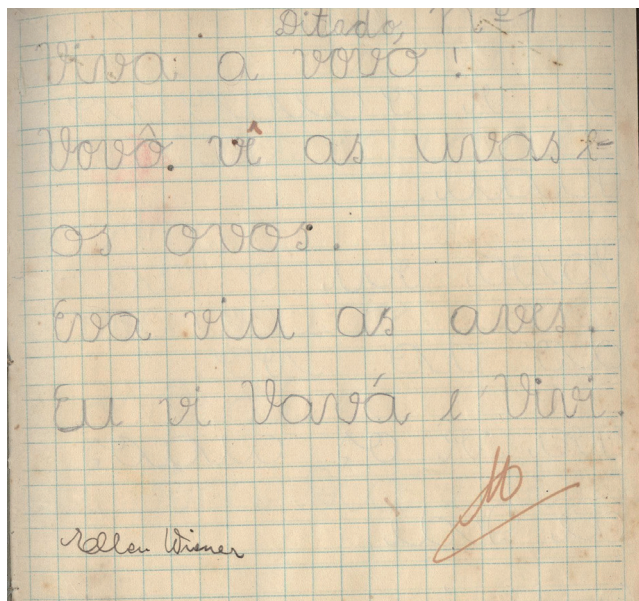 Ditado, Nº 1
Viva a vovó!
Vovô. vê as uvas e
os ovos.
Eva viu as aves.
Eu vi Vavá e Vivi.
Wiener